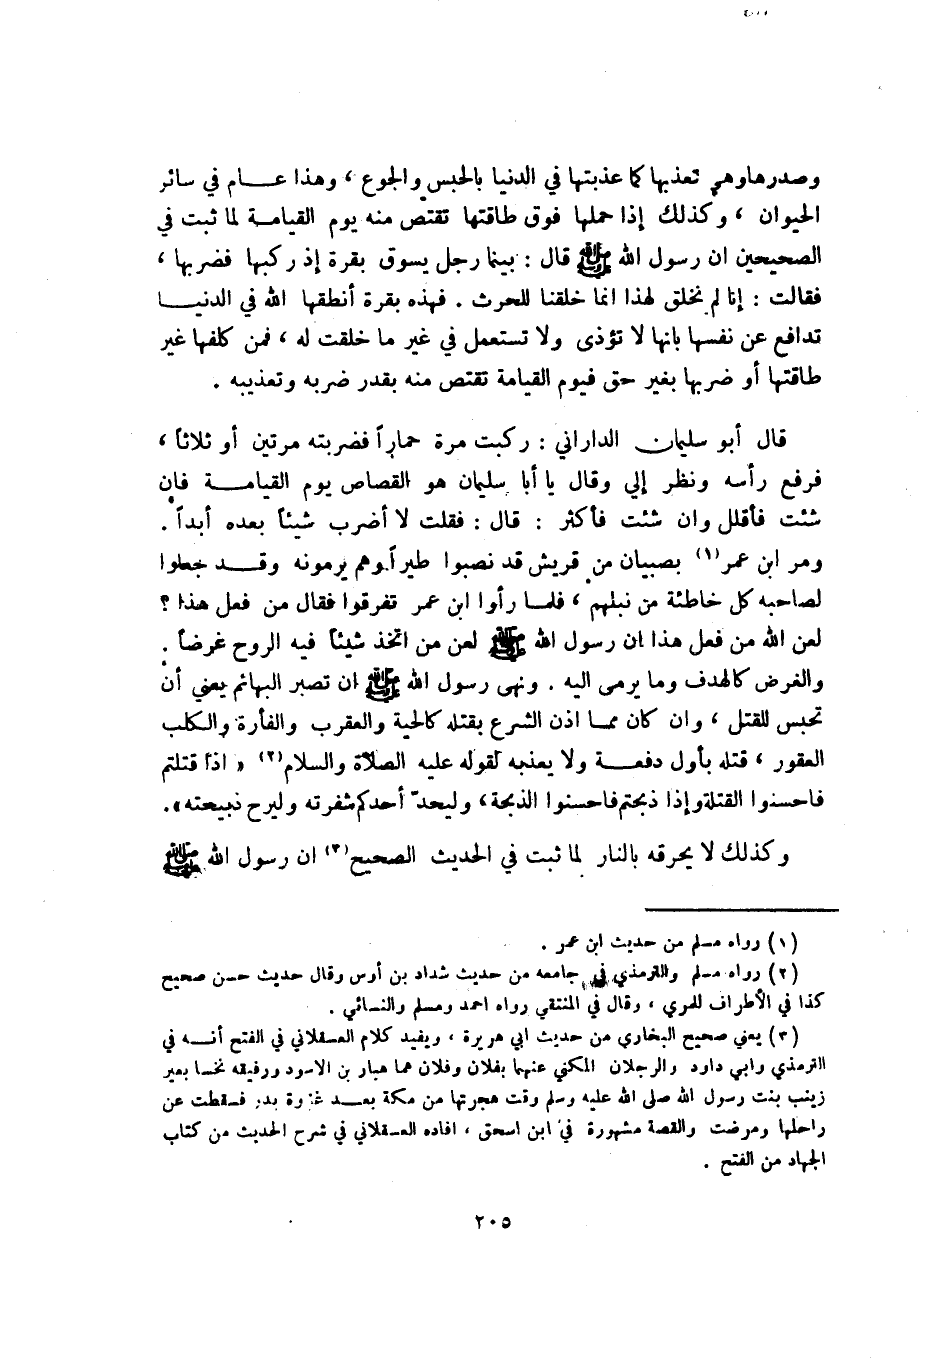 وصدرها وهي تعذبها كما عذبتها في الدنيا بالحبس والجوع ، وهذا عـــام في سائر
الحيوان ، وكذلك إذا حملها فوق طاقتها تقتص منه يوم القيامة لما ثبت في
الصحيحين ان رسول الله ﷺ قال : بينما رجل يسوق بقرة إذ ركبها فضربها ،
فقالت : إنا لم نخلق لهذا انما خلقنا للحرث . فهذه بقرة أنطقها الله في الدنيـــا
تدافع عن نفسها بانها لا تؤذى ولا تستعمل في غير ما خلقت له ، فمن كلفها غير
طاقتها أو ضربها بغير حق فيوم القيامة تقتص منه بقدر ضربه وتعذيبه .
قال أبو سليمان الداراني : ركبت مرة حماراً فضربته مرتين أو ثلاثاً ،
فرفع رأسه ونظر إلي وقال يا أبا سليمان هو القصاص يوم القيامـــة فان
شئت فأقلل وان شئت فأكثر : قال : فقلت لا أضرب شيئاً بعده أبداً .
ومر ابن عمر (١) بصبيان من قريش قد نصبوا طيراً وهم يرمونه وقـــد جعلوا
لصاحبه كل خاطئة من نبلهم ، فلمـا رأوا ابن عمر تفرقوا فقال من فعل هذا ؟
لعن الله من فعل هذا ان رسول الله ﷺ لعن من اتخذ شيئاً فيه الروح غرضاً .
والغرض كالهدف وما يرمى اليه . ونهى رسول الله ﷺ ان تصبر البهائم يعني أن
تحبس للقتل ، وان كان ممـا اذن الشرع بقتله كالحية والعقرب والفأرة والكلب
العقور ، قتله بأول دفعـــة ولا يعذبه لقوله عليه الصلاة والسلام (٢) « اذا قتلتم
فاحسنوا القتلة وإذا ذبحتم فاحسنوا الذبحة ، وليحدّ أحدكم شفرته وليرح ذبيحته » .
وكذلك لا يحرقه بالنار لما ثبت في الحديث الصحيح (٣) ان رسول الله ﷺ
(١) رواه مسلم من حديث ابن عمر .
(٢) رواه مسلم والترمذي في جامعه من حديث شداد بن أوس وقال حديث حسن صحيح
كذا في الأطراف للمري ، وقال في المنتقي رواه احمد ومسلم والنسائي .
(٣) يعني صحيح البخاري من حديث ابي هريرة ، ويفيد كلام العسقلاني في الفتح أنـــه في
الترمذي وابي داود والرجلان المكني عنهما بفلان وفلان هما هبار بن الاسود ورفيقه نخسا بعير
زينب بنت رسول الله صلى الله عليه وسلم وقت هجرتها من مكة بعـــد غزوة بدر فسقطت عن
راحلتها ومرضت والقصة مشهورة في ابن اسحق ، افاده العسقلاني في شرح الحديث من كتاب
الجهاد من الفتح .
٢٠٥